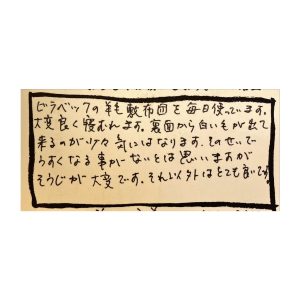 ビラベックの羊毛敷布団を毎日使っています。
大変良く寝むれます。裏面から白い毛が出て
来るのが少々気にはなります。そのせいで
うすくなる事がないとは思いますが
そうじが大変です。それ以外はとても良いです。